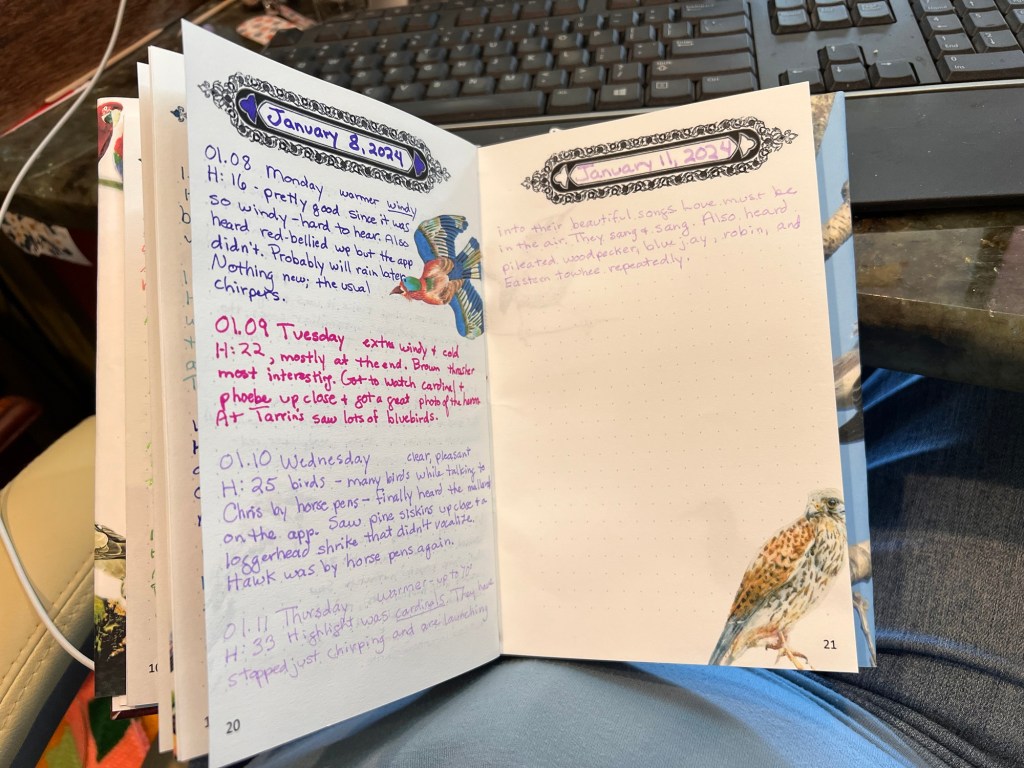 January 8, 2024
01.08 Monday warmer windy
H: 16 - pretty good since it was
so windy - hard to hear. Also
heard red-bellied wp but the app
didn't. Probably will rain later.
Nothing new; the usual
chirpers.
01.09 Tuesday extra windy + cold
H: 22, mostly at the end. Brown thrasher
most interesting. Got to watch cardinal +
phoebe up close + got a great photo of the
At Tarrin's saw lots of bluebirds.
01.10 Wednesday clear, pleasant
H: 25 birds - many birds while talking to
Chris by horse pens - finally heard the mallard
on the app. Saw pine siskins up close + a
loggerhead shrike that didn't vocalize.
Hawk was by horse pens again.
01.11 Thursday warmer - up to
H: 33 Highlight was cardinals. They have
stopped just chirping and are launching
20
January 11, 2024
into their beautiful songs. Love must be
in the air. They sang + sang. Also heard
pileated woodpecker, blue jay, robin, and
Eastern towhee repeatedly.
21